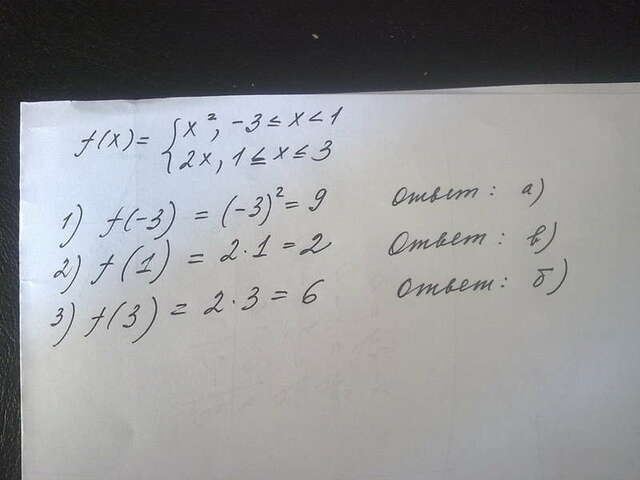 f(x) = { x², -3 ≤ x < 1
2x, 1 ≤ x ≤ 3
1) f(-3) = (-3)² = 9 Ответ: а)
2) f(1) = 2·1 = 2 Ответ: в)
3) f(3) = 2·3 = 6 Ответ: б)